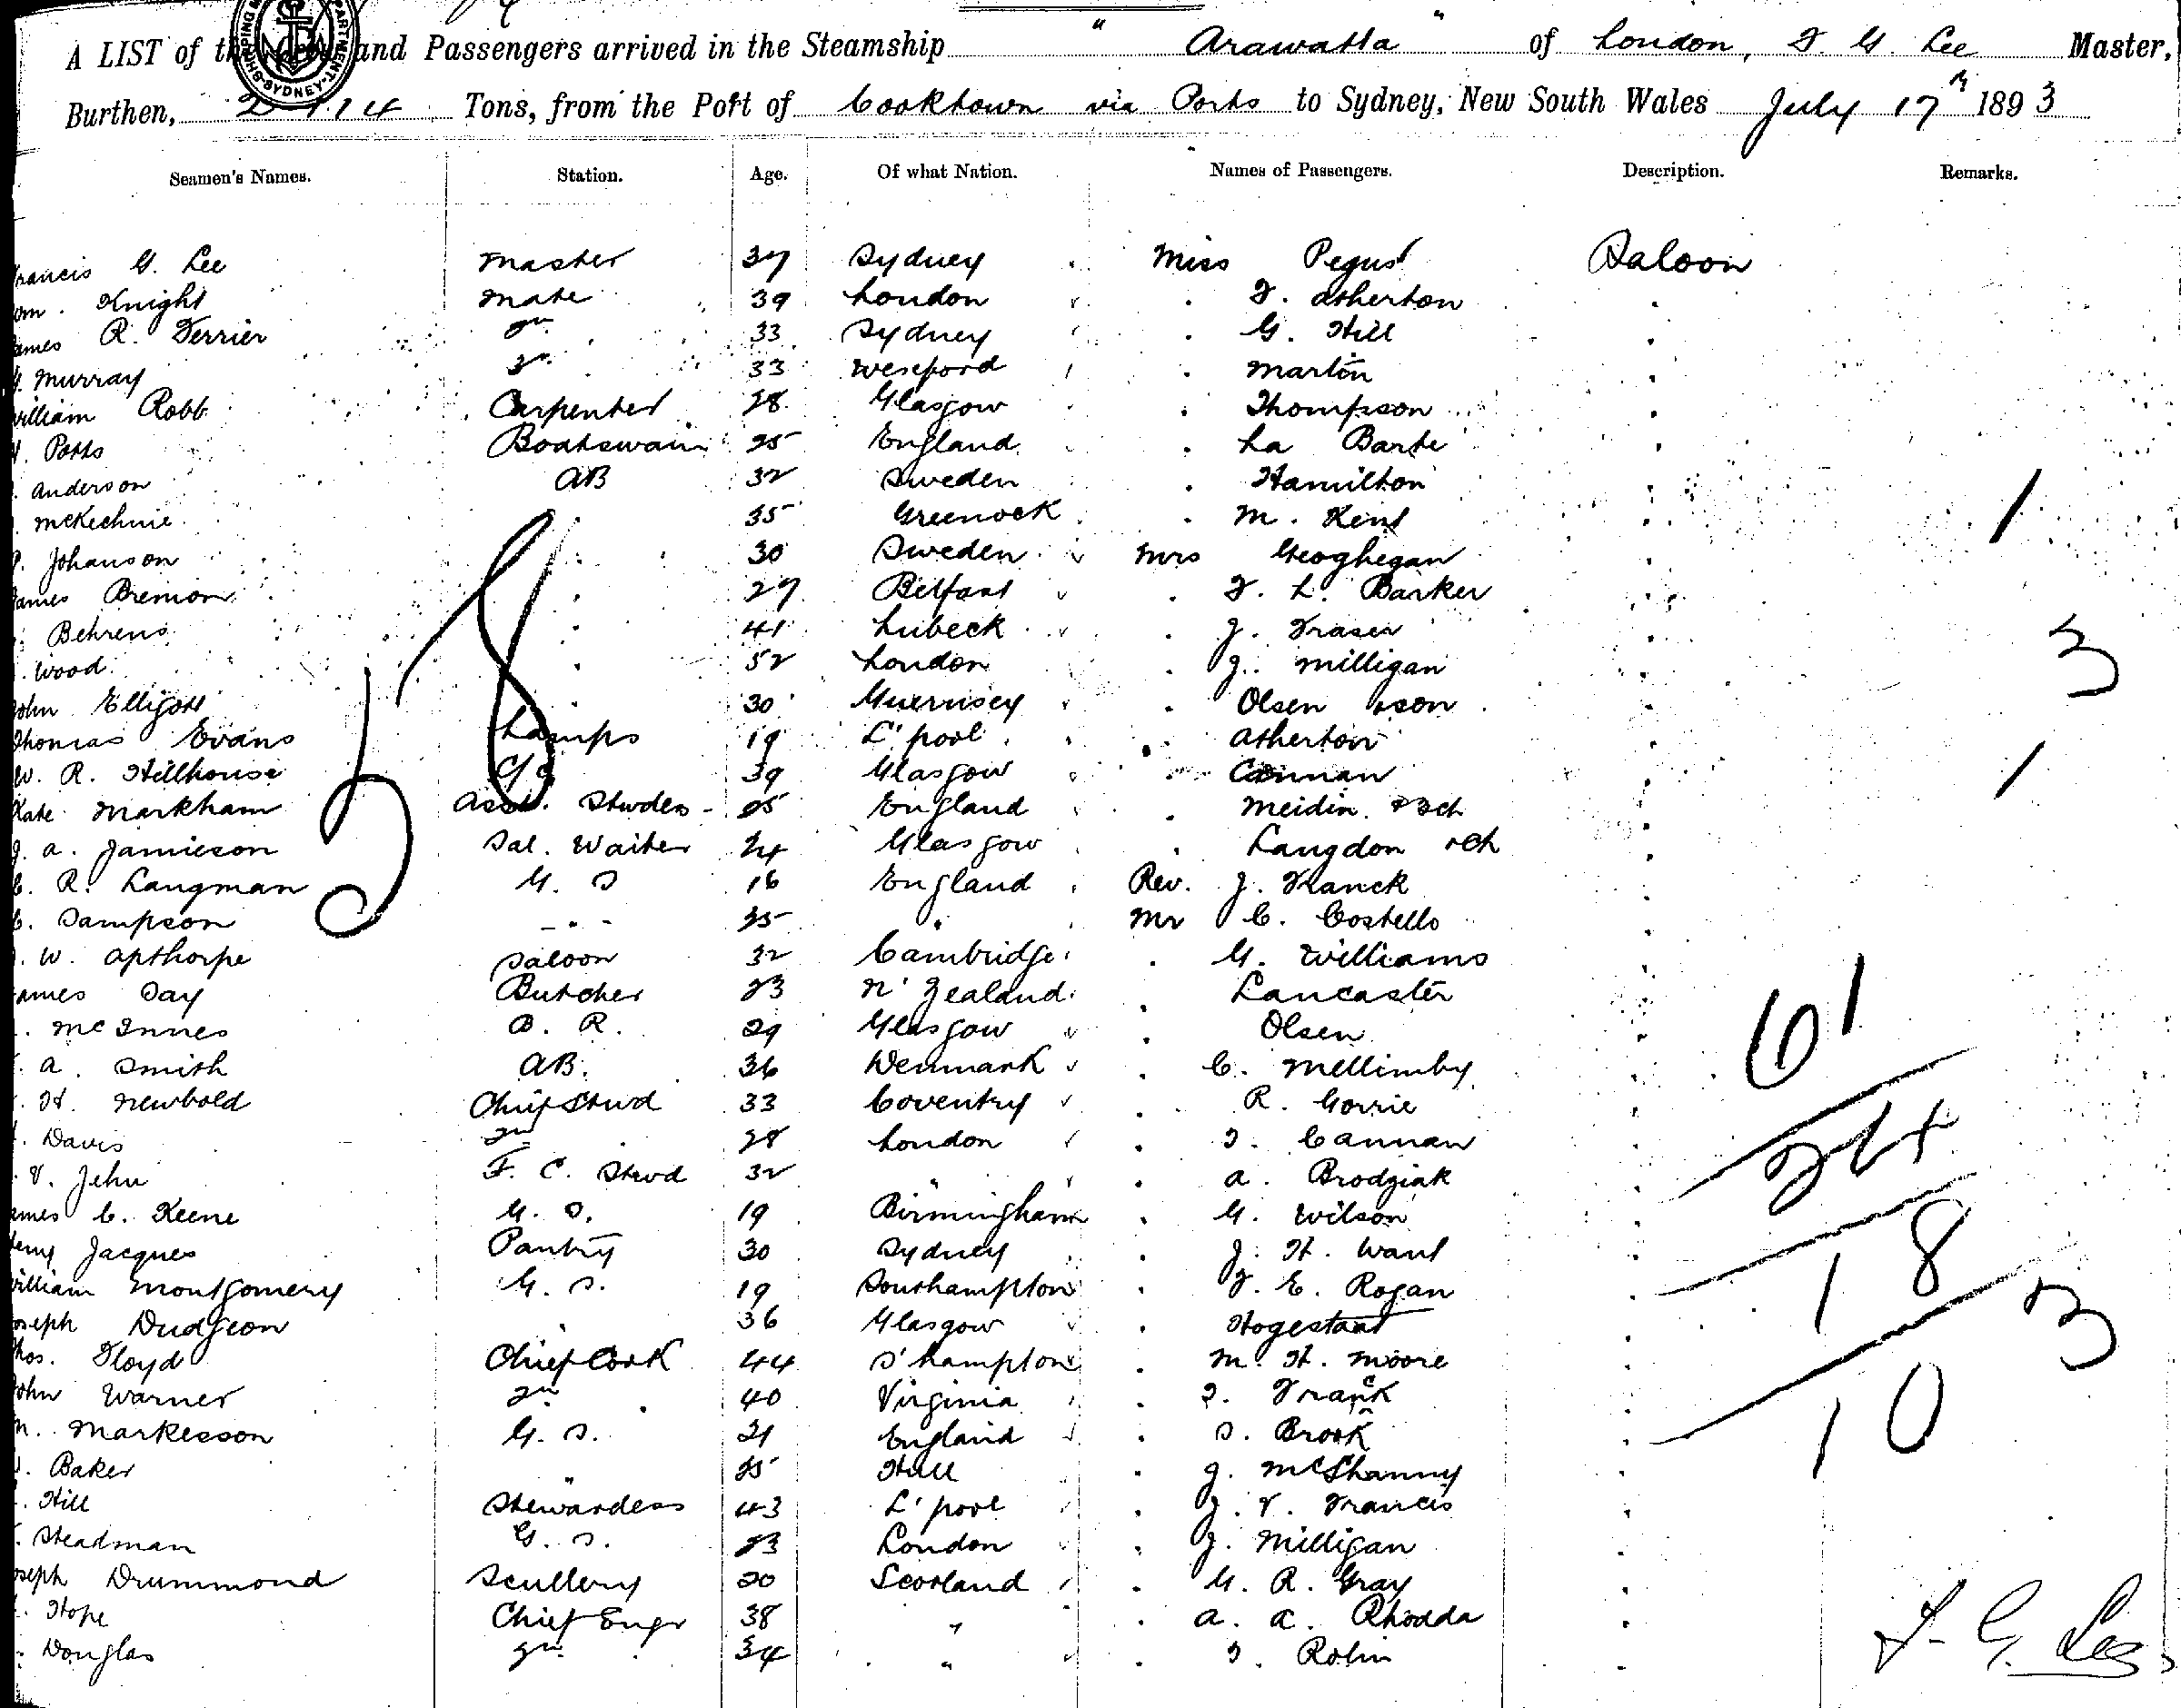 A LIST of the Crew and Passengers arrived in the Steamship "Arawatta" of London, F. G. Lee Master,
Burthen, 2114 Tons, from the Port of Cooktown via Ports to Sydney, New South Wales July 17th 1893
Seamen's Names. Station. Age. Of what Nation. Names of Passengers. Description. Remarks.
rancis G. Lee Master 37 Sydney Miss Pegus Saloon
Knight Mate 39 London " F. Atherton "
ames R. Ferrier 2nd 33 Sydney " G. Hill "
Murray 3rd 33 Wexford " Martin "
william Robb Carpenter 28 Glasgow " Thompson "
Potts Boatswain 25 England " La Barte "
Anderson AB 32 Sweden " Hamilton "
McKechnie " 35 Greenock " M. Kent " 1
Johanson " 30 Sweden Mrs Geoghegan "
ames Bremon " 27 Belfast " F. L. Barker "
Behrens " 41 Lubeck " J. Fraser " 3
Wood " 52 London " J. Milligan "
John Elligott " 30 Guernsey " Olsen & son "
Thomas Evans Lamps 19 L'pool " Atherton "
W. R. Hillhouse 39 Glasgow " Cannan " 1
Kate Markham Asst. Stwdess 25 England " Meidin & 3 ch "
J. A. Jamieson Sal. Waiter 24 Glasgow " Langdon & ch "
C. R. Langman G. S 16 England Rev. J. Franck "
C. Sampson - " - 35 " Mr C. Costello "
W. Apthorpe Saloon 32 Cambridge " G. Williams "
ames Day Butcher 23 N' Zealand " Lancaster "
McInnes B. R. 29 Glasgow " Olsen " 61
A. Smith AB. 36 Denmark " C. Mellimby "
H. Newbold Chief Stwd 33 Coventry " R. Gorrie "
Davis 2nd 28 London " T. Cannan "
V. Jehu F. C. Stwd 32 " " A. Brodziak "
ames C. Keene G. S. 19 Birmingham " G. Wilson "
Jacques Pantry 30 Sydney " J. H. Want " 18
william Montgomery G. S. 19 Southampton " F. E. Rogan "
oseph Dudgeon " 36 Glasgow " Hogestaat " 3
hos. Floyd Chief Cook 44 S'hampton " M. H. Moore "
John Warner 2nd 40 Virginia " T. Franck " 10
Markesson G. S. 21 England " S. Brook "
Baker " 25 Hull " J. McShanny "
Hill Stewardess 43 L'pool " J. V. Francis "
Steadman G. S. 23 London " J. Milligan "
oseph Drummond Scullery 20 Scotland " G. R. Gray "
Hope Chief Engr 38 " " A. A. Rhodda "
Douglas 2nd 34 " " T. Robin "
58
F. G. Lee